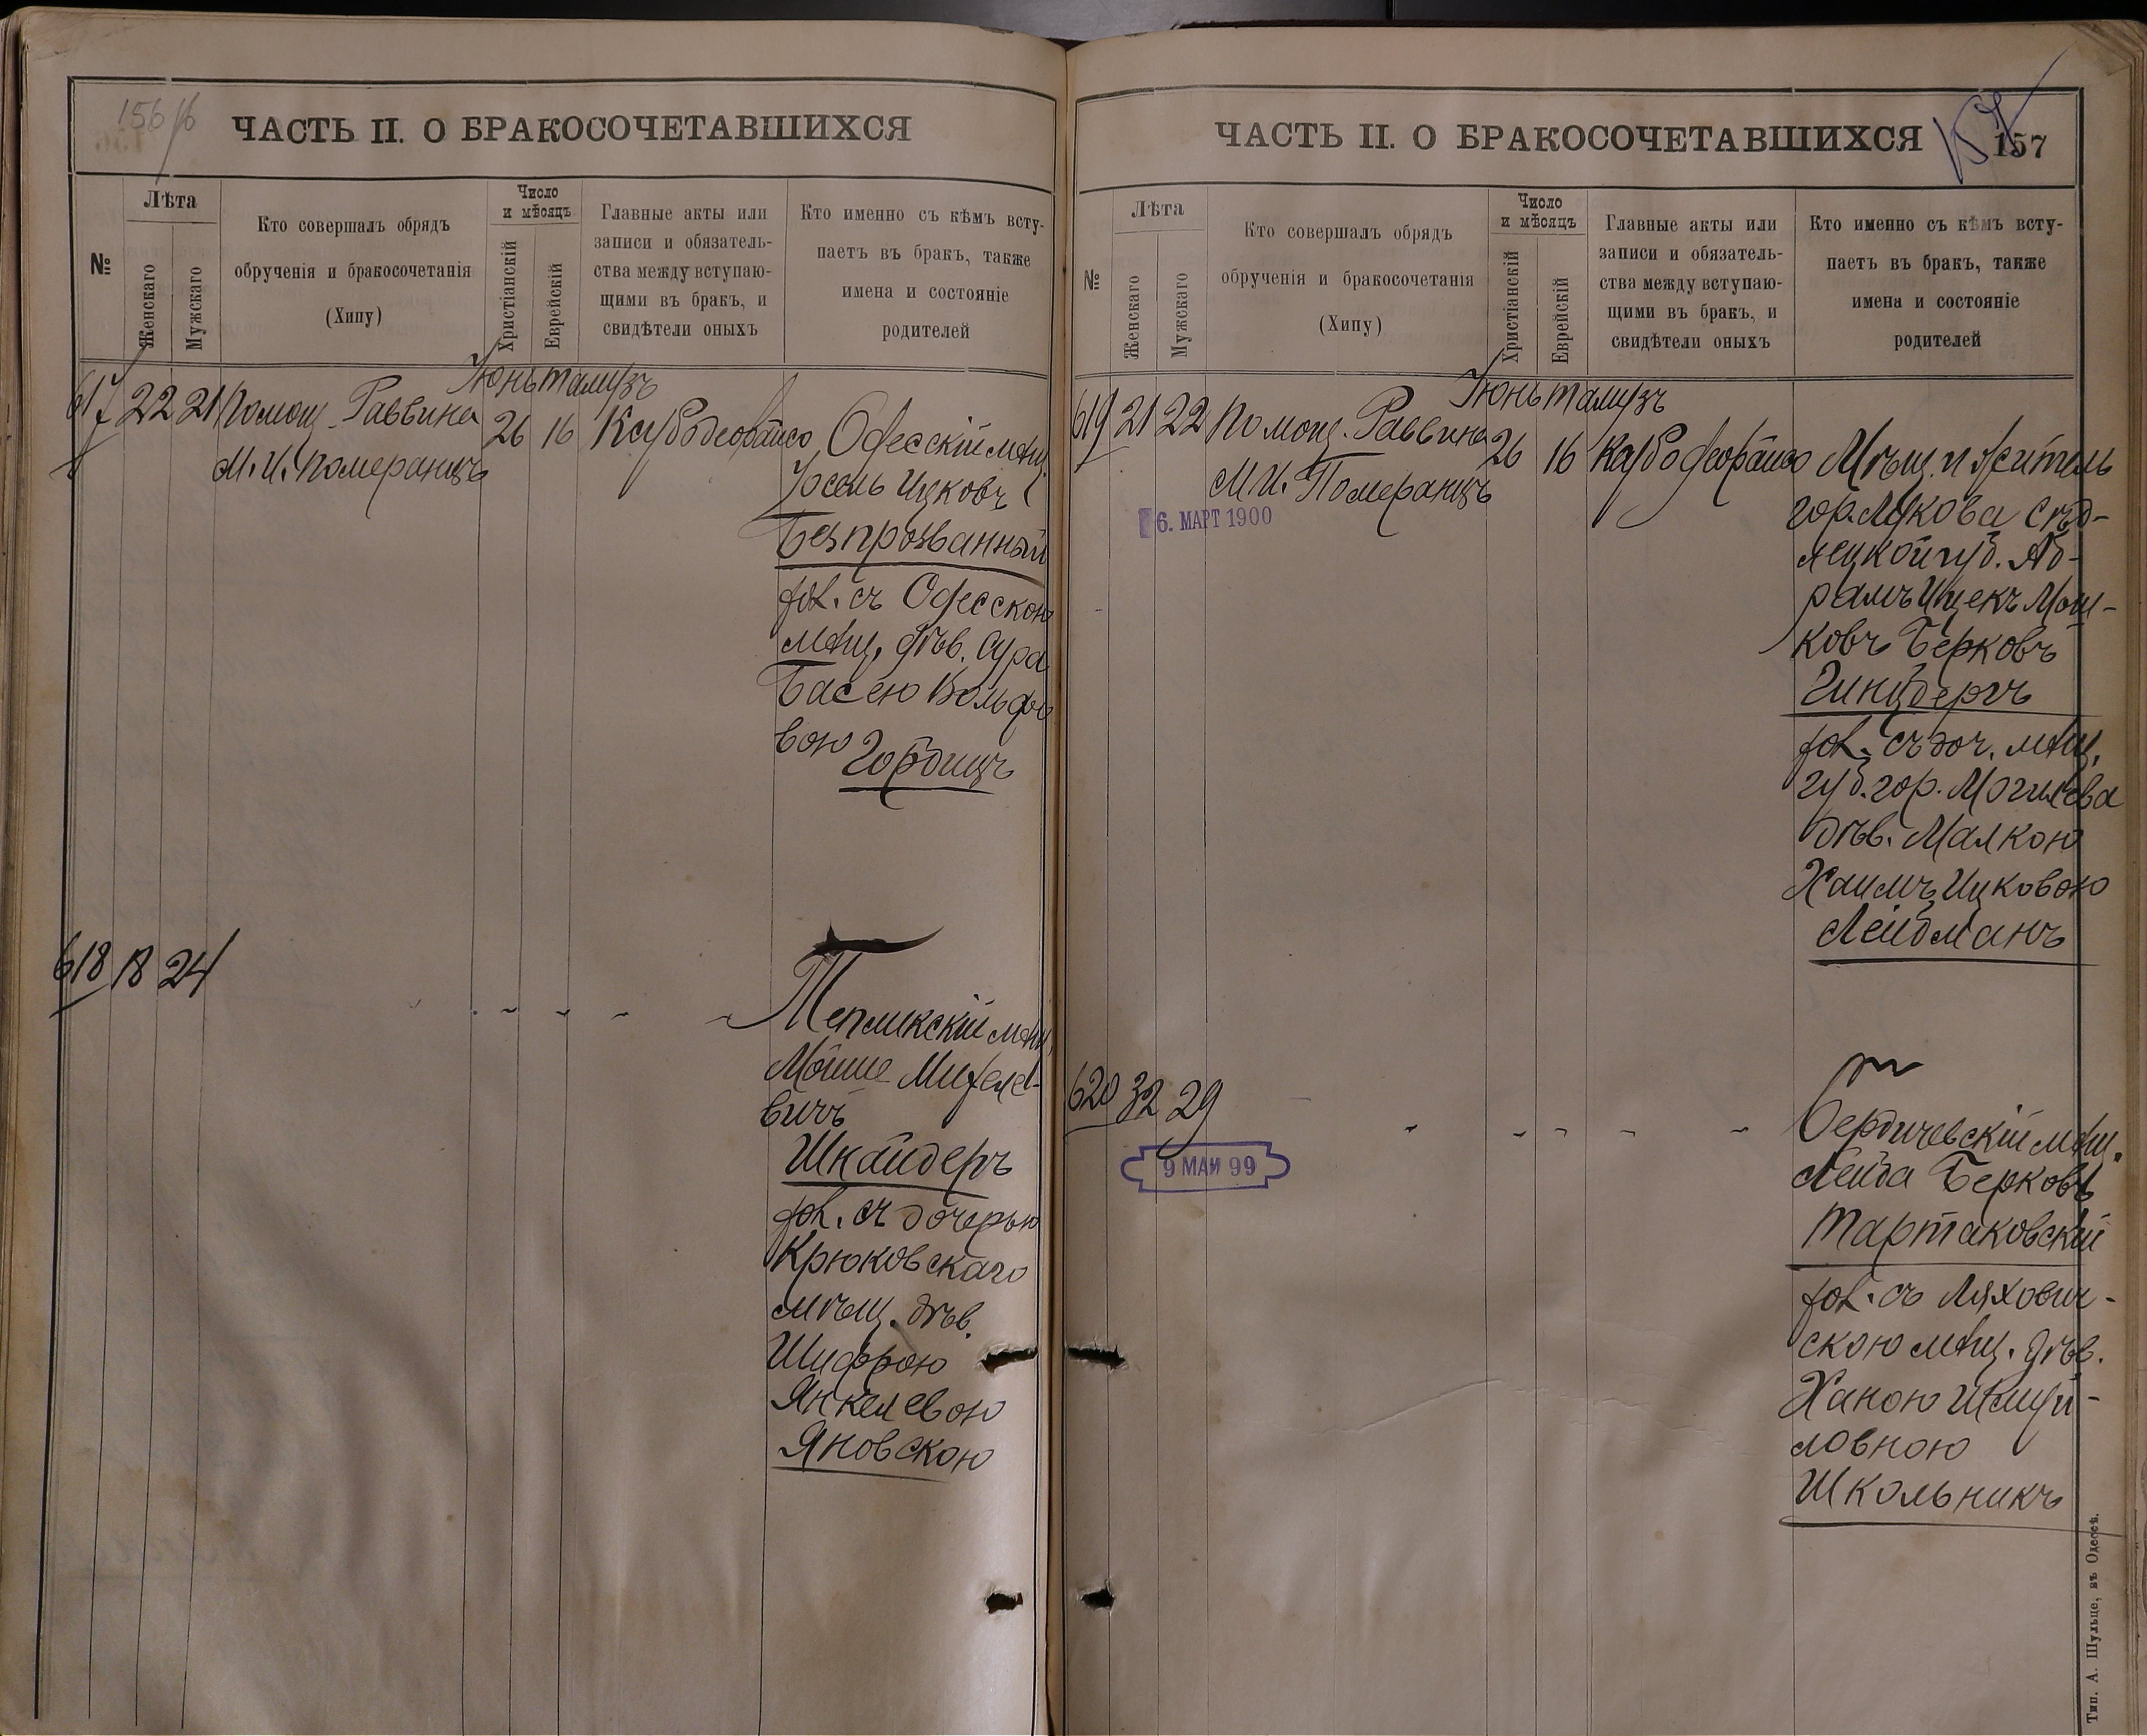 156 об
ЧАСТЬ II. О БРАКОСОЧЕТАВШИХСЯ
№
Лѣта
Женскаго
Мужскаго
Кто совершалъ обрядъ
обрученія и бракосочетанія
(Хипу)
Число
и мѣсяцъ
Христіанскій
Еврейскій
Главные акты или
записи и обязатель-
ства между вступаю-
щими въ бракъ, и
свидѣтели оныхъ
Кто именно съ кѣмъ всту-
паетъ въ бракъ, также
имена и состояніе
родителей
Іюнь тамузъ
617 22 21 Помощ. Раввина
М. И. Померанцъ
26 16
Одесскій мѣщ.
Іосель Ицковъ
Безпрозванный
хол. съ Одесскою
мѣщ. дѣв. Сура
Басею Вольфо
вою
Гордицъ
618 18 24
Тепликскій мѣщ.
Мойше Михеле-
вичъ
Шнайдеръ
хол. съ дочерью
Крюковскаго
мѣщ. дѣв.
Шифрою
Янкелевою
Яновскою
ЧАСТЬ II. О БРАКОСОЧЕТАВШИХСЯ
157
157
№
Лѣта
Женскаго
Мужскаго
Кто совершалъ обрядъ
обрученія и бракосочетанія
(Хипу)
Число
и мѣсяцъ
Христіанскій
Еврейскій
Главные акты или
записи и обязатель-
ства между вступаю-
щими въ бракъ, и
свидѣтели оныхъ
Кто именно съ кѣмъ всту-
паетъ въ бракъ, также
имена и состояніе
родителей
Іюнь тамузъ
619 21 22 Помощ. Раввина
М. И. Померанцъ
26 16
6. МАРТ 1900
Мѣщ. и житель
гор. Лукова Сѣд-
лецкой губ. Аб-
рамъ Ицекъ Мош-
ковъ Берковъ
Гинцбергъ
хол. съ доч. мѣщ.
губ. гор. Могилева
дѣв. Малкою
Хаимъ Ицковою
Лейбманъ
620 32 29
9 МАИ 99
Бердичевскій мѣщ.
Лейба Берковъ
Тартаковскій
хол. съ Ляхович-
скою мѣщ. дѣв.
Ханою Шмуй-
ловною
Школьникъ
Тип. А. Шульце, въ Одессѣ.